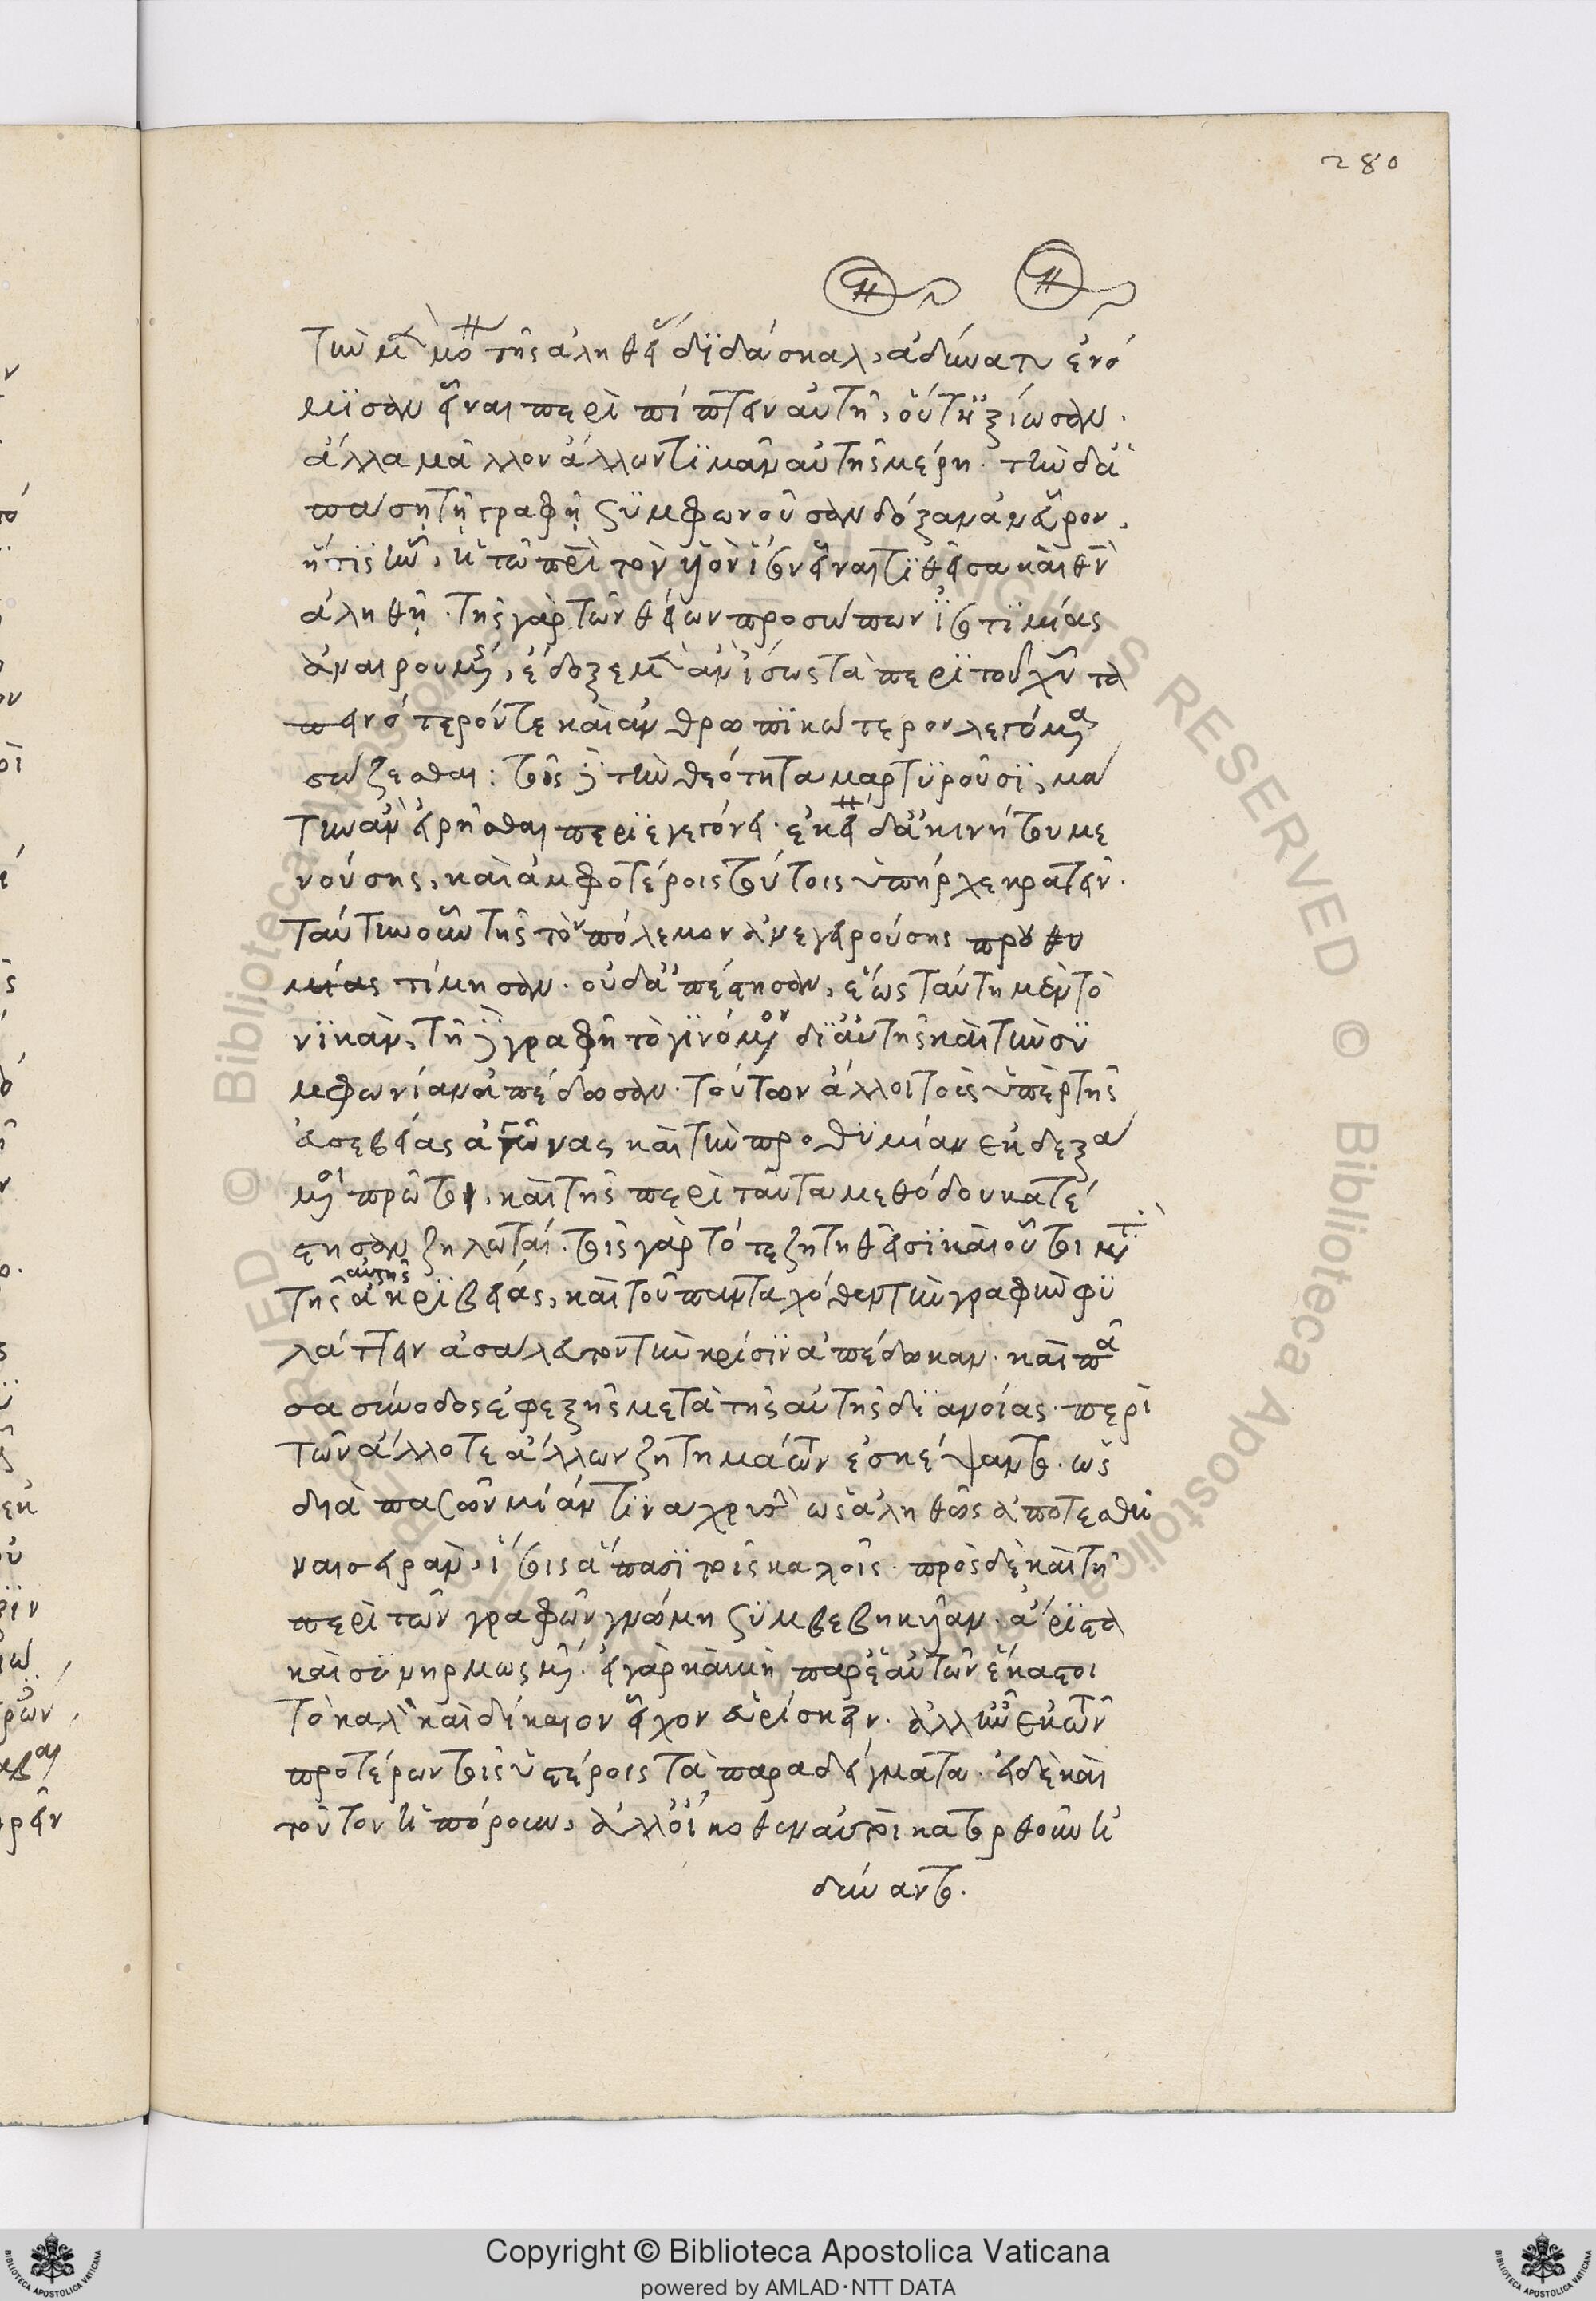 280
τὴν μὲν μό τῆς ἀληθεί διδάσκαλ, ἀδύνατον ἐνό
μισαν εἶναι περιπίπτειν αὐτῇ, οὔτ' ἠξίωσαν.
ἀλλὰ μᾶλλον ἄλλων τιμᾶν αὐτῆς μέρη. τὴν δ'
πάσῃ τῇ γραφῇ συμφωνοῦσαν δόξαν ἀνεῦρον,
ἥτις ἦν, ἡ τῷ πρὶ τὸν υἱὸν ἴσον εἶναι τιθεῖσα καὶ θν
ἀληθῆ. τῆς γὰρ τῶν θείων προσώπων ἰσοτιμίας
ἀναιρουμένης, ἔδοξε μὲν ἀν ἴσως τὰ περὶ τοῦ χῦ τα
πεινότερόν τε καὶ ἀνθρωπικώτερον λεγόμενα
σώζεσθαι: τοῖς δὲ τὴν θεότητα μαρτυροῦσι, μά
την ἂν εἰρῆσθαι περιεγεγόνει. ἐκεί δ' ἀκινήτου με
νούσης, καὶ ἀμφοτέροις τούτοις ὑπῆρχε κρατεῖν.
ταύτην οὖν τῆς τὸν πόλεμον ἀνεγειρούσης προθυ
μίας τίμησαν. οὐδ' ἀπέστησαν, ἕως ταύτῃ μὲν τὸ
νικᾶν, τῇ δὲ γραφῇ τὸ γινόμενον δι' αὐτῆς καὶ τὴν συ
μφωνίαν ἀπέδοσαν. τούτων ἄλλοι τοὺς ὑπὲρ τῆς
εὐσεβείας ἀγῶνας καὶ τὴν προθυμίαν ἐκδεξά
μενοι πρῶτοι, καὶ τῆς περὶ ταῦτα μεθόδου κατέ
στησαν ζηλωταί. τοῖς γὰρ τότε ζητηθεῖσι καὶ οὗτοι μετὰ
τῆς αὐτῆς ἀκριβείας, καὶ τοῦ πανταχόθεν τὴν γραφὴν φυ
λάττειν ἀσάλευτον τὴν κρίσιν ἀπέδωκαν. καὶ πᾶ
σα σύνοδος ἐφεξῆς μετὰ τῆς αὐτῆς διανοίας. περὶ
τῶν ἄλλοτε ἄλλων ζητημάτων ἐσκέψαντο. ὡς
διὰ πασῶν μίαν τινὰ χρυσῆν ὡς ἀληθῶς ἀποτεσθῆ
ναι σειράν, ἴσοις ἅπασι τοῖς καλοῖς. πρὸς δὲ καὶ τῇ
περὶ τῶν γραφῶν γνώμῃ συμβεβηκυῖαν. ἄριστα
καὶ συνηρμωσμέν. εἰ γὰρ καὶ μὴ παρ' ἑαυτῶν ἕκαστοι
τὸ καλὸν καὶ δίκαιον εἶχον εὑρίσκειν. ἀλλ' ἦν ἐκ τῶν
προτέρων τοῖς ὑστέροις τὰ παραδείγματα. εἰ δὲ καὶ
τούτον ἠπόρουν, ἀλλ' οἴκοθεν αὐτοὶ κατορθοῦν ἠ
δύναντο.